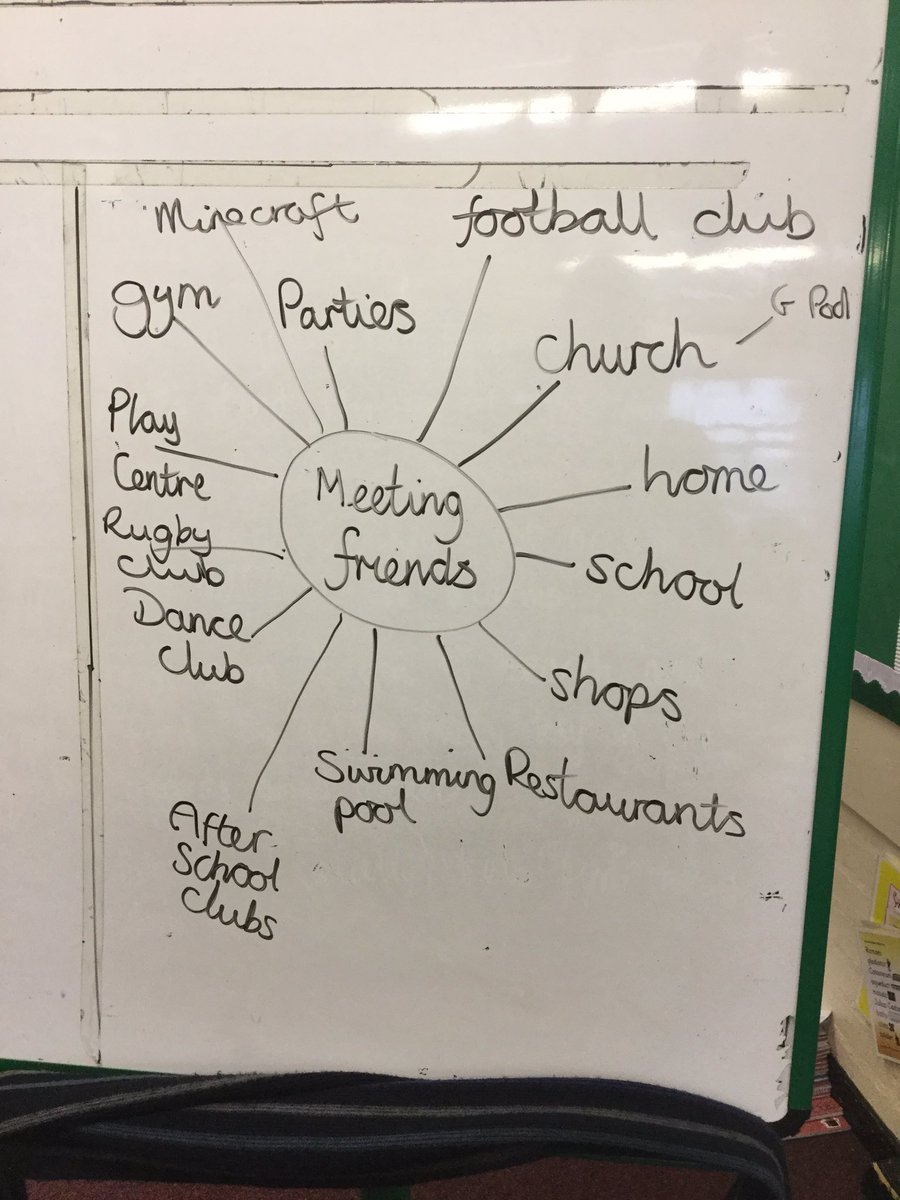 Minecraft
football club
gym
Parties
G Pool
church
Play
Centre
Meeting
friends
home
Rugby
club
school
Dance
club
shops
Swimming
pool
Restaurants
After
School
Clubs